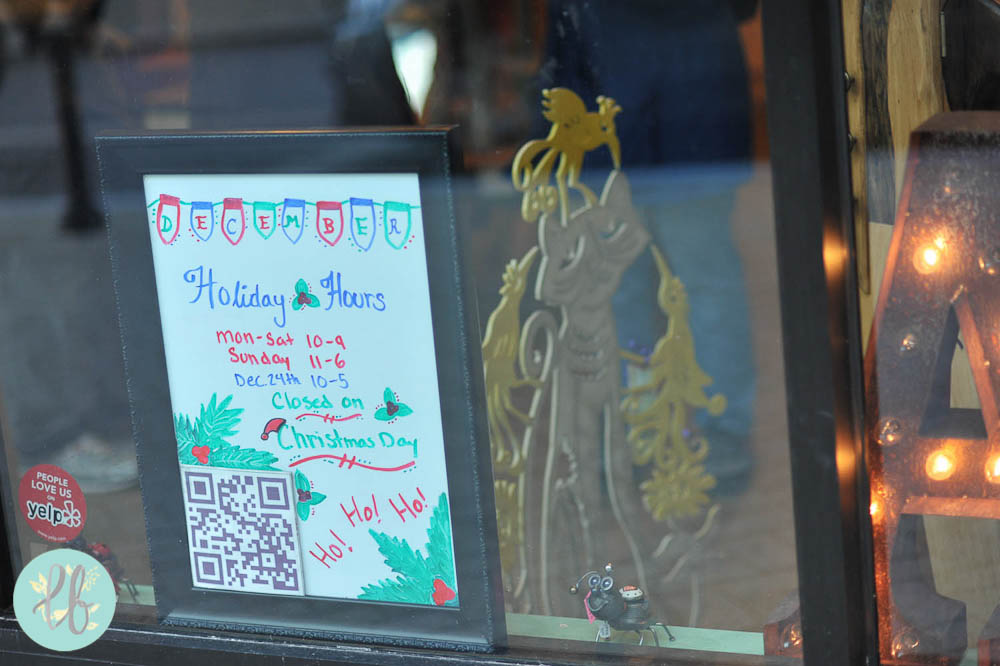 DECEMBER
Holiday Hours
mon-sat 10-9
Sunday 11-6
Dec. 24th 10-5
Closed on
Christmas Day
Ho! Ho! Ho!
PEOPLE
LOVE US
ON
yelp
www.yelp.com
lf
A